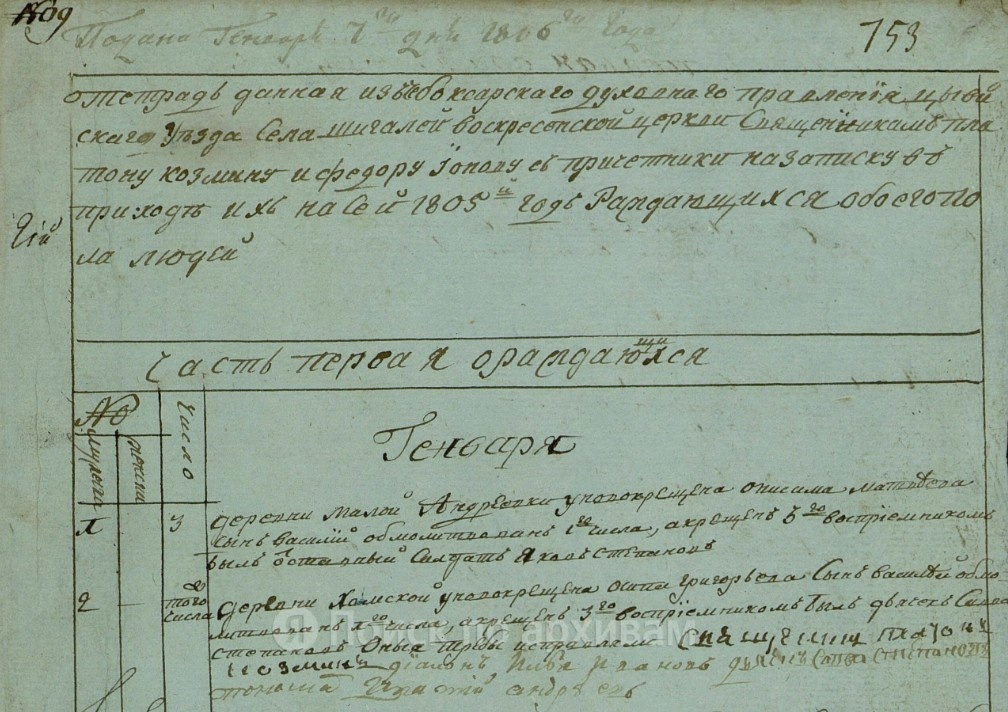 № 9
Подана Генваря 7го дня 1806го года
753
тетрадь данная изъ чебоксарскаго духовнаго правления цывиль
скаго уѣзда Села шигалей воскресенской церкви Священникамъ пла
тону козмину и федору Iонову съ причетники на записку въ
приходѣ ихъ на Сей 1805й годъ Раждающихся обоего по
ла людей
часть первая о раждающихся
№
число
мужеска
женска
Генваря
1 3 деревни малой Андреевки у новокрещена онисима матвѣева
сынъ василий обмолитвованъ 1го числа, а крещенъ 3го восприемникомъ
былъ отставный Салдатъ яковъ степановъ
2 — того числа деревни у новокрещена осипа григорьева Сынъ василей обмо
литвованъ числа, а крещенъ 3го восприемникомъ былъ дьячекъ
степановъ Оныя требы исправляли священникъ платонъ
козминъ дьяконъ Илья Ивановъ дьячекъ степановъ
пономарь андреевъ
Поиск по архивам